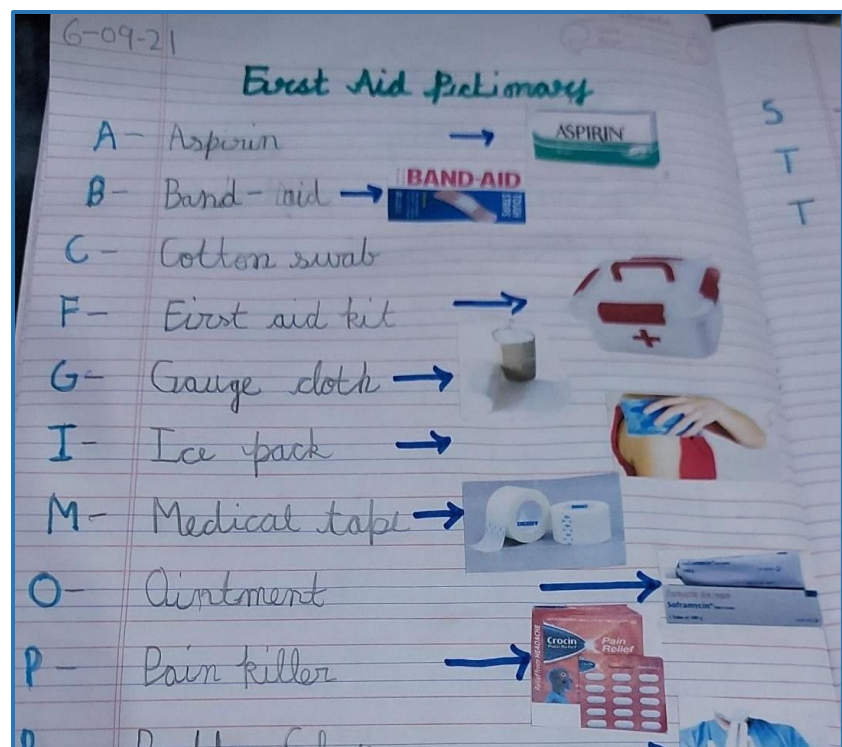 6-09-21
First Aid Pictionary
A- Aspirin → ASPIRIN
B- Band-aid → BAND-AID
C- Cotton swab
F- First aid kit →
G- Gauge cloth →
I- Ice pack →
M- Medical tape →
O- Ointment → Soframycin
P- Pain killer → Crocin Pain Relief
Relief from HEADACHE
S
T
T